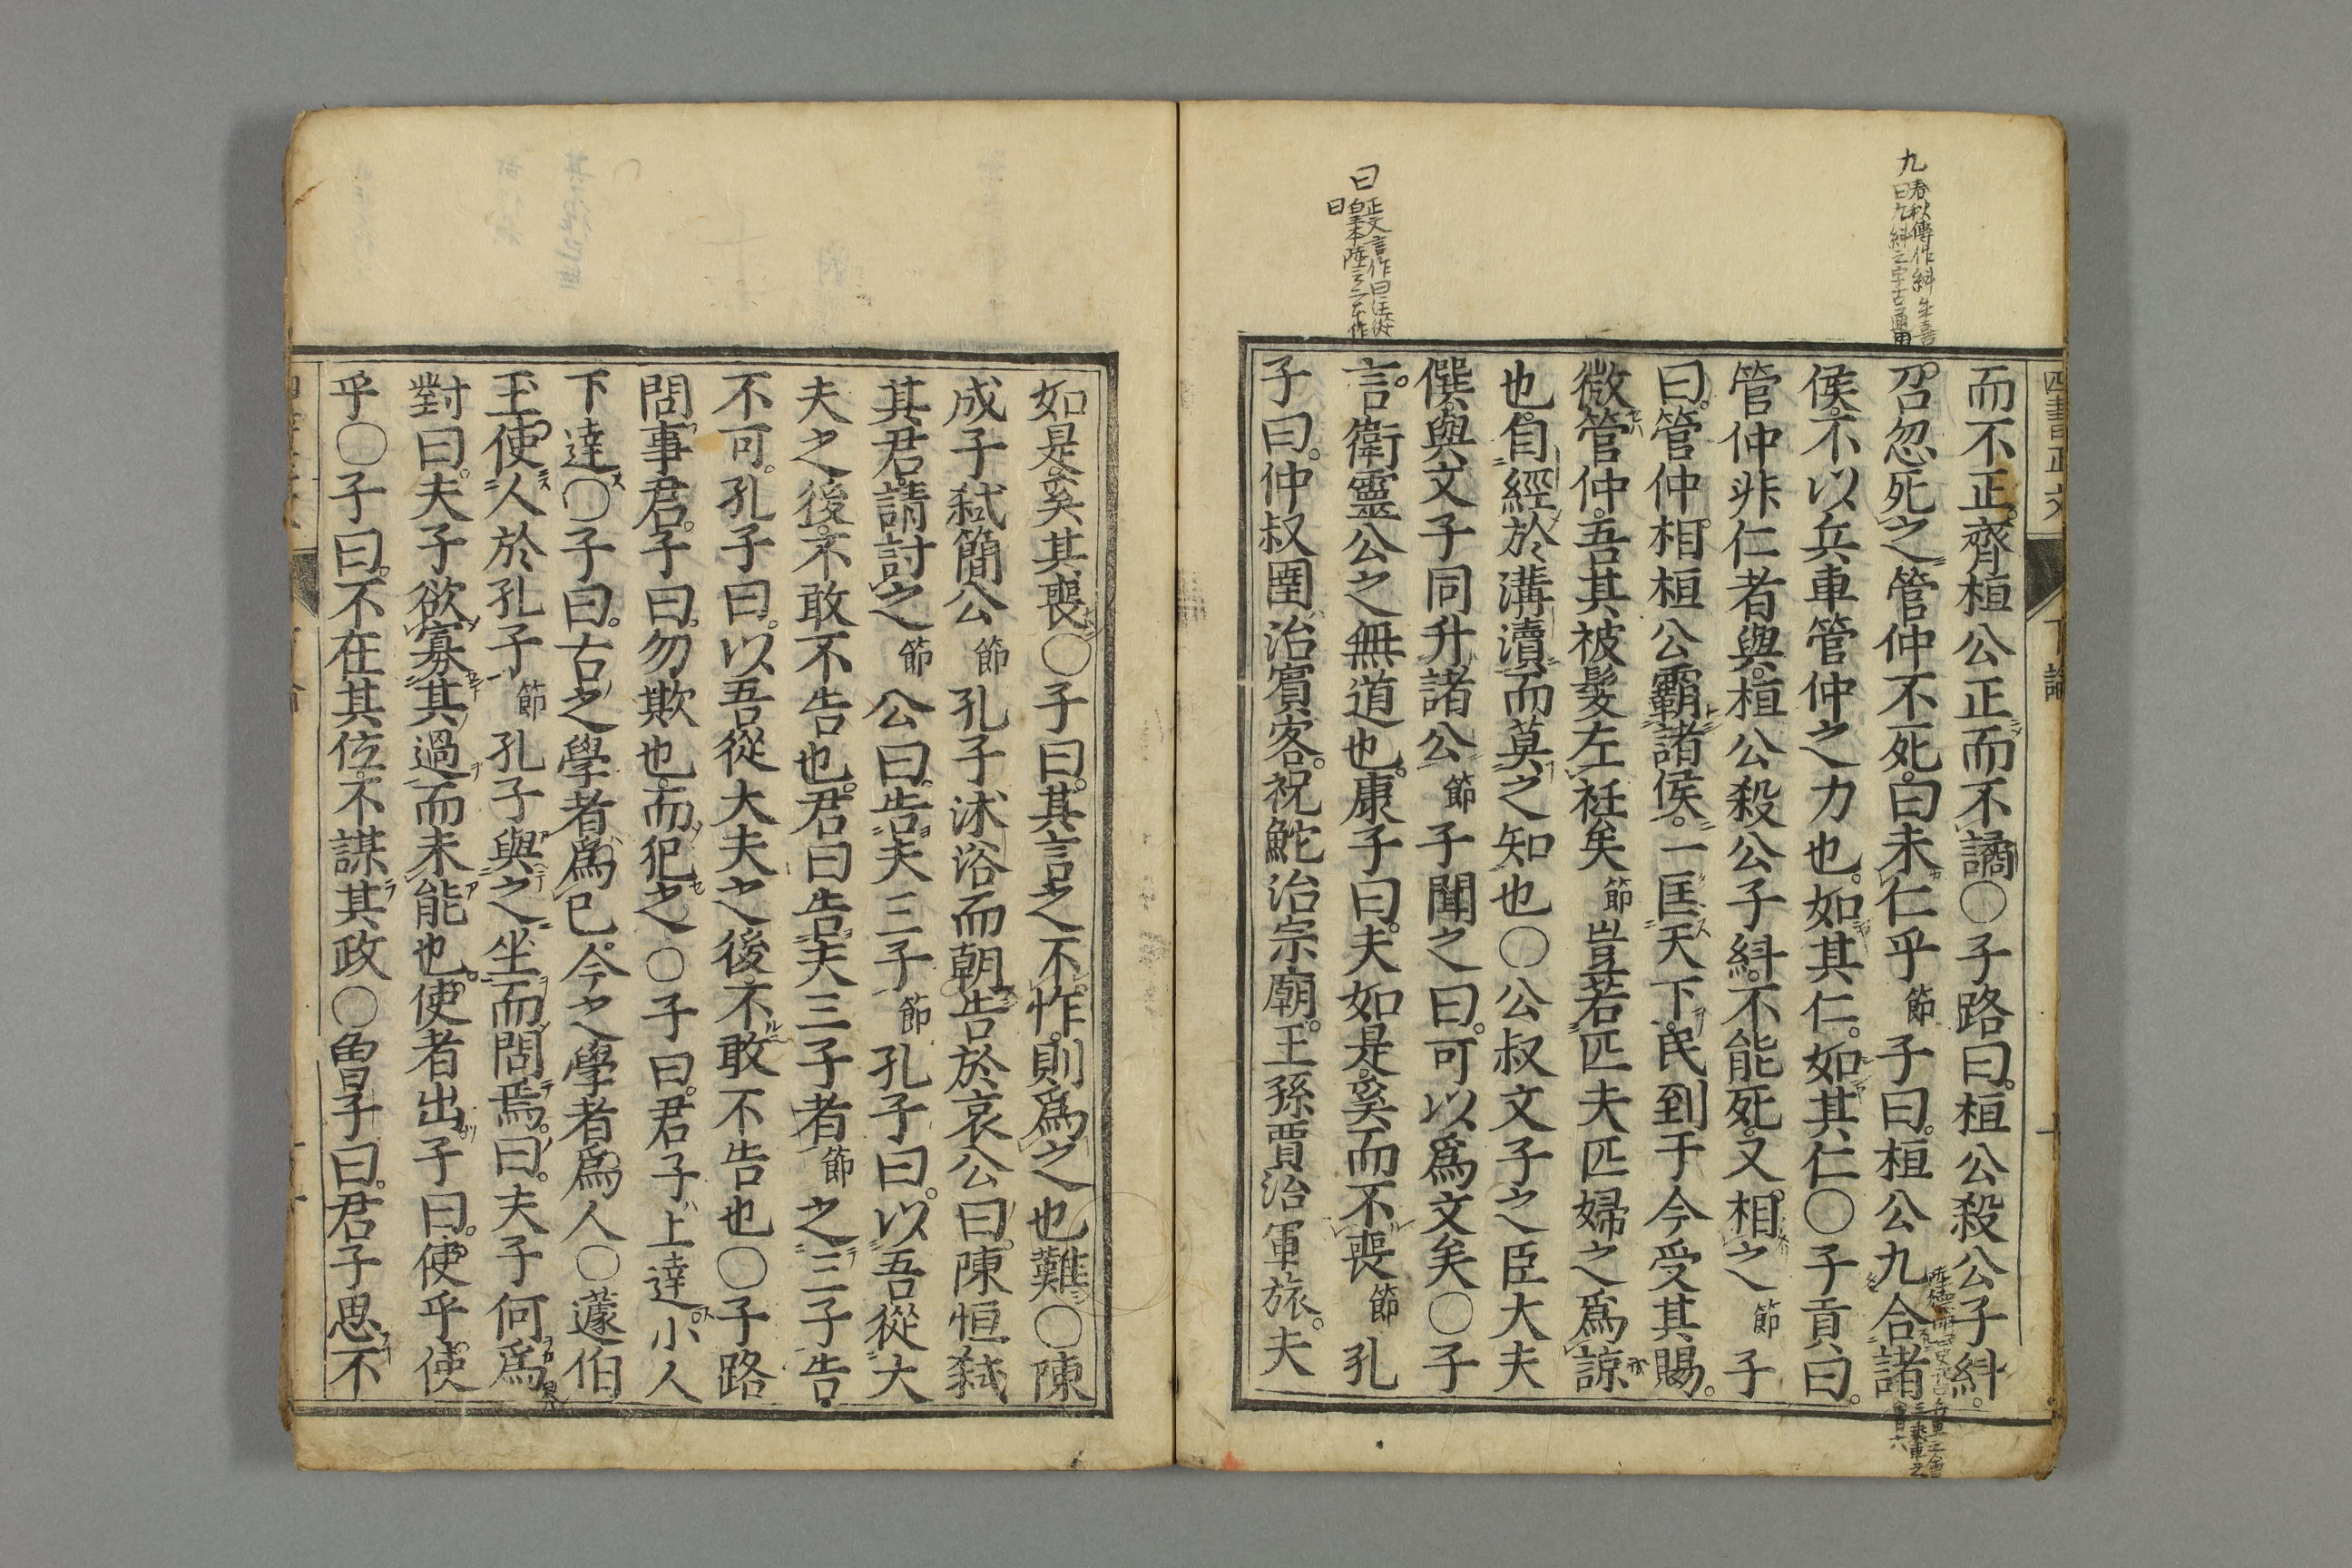 九
春秋傳作糾朱喜
曰九糾之字古通用
曰
正文言作曰注從
皇本陸云一本作
曰
四書正文
下論
而不正齊桓公正而不譎○子路曰桓公殺公子糾
召忽死之管仲不死曰未仁乎節子曰桓公九合諸
侯不以兵車管仲之力也如其仁如其仁○子貢曰
管仲非仁者與桓公殺公子糾不能死又相之節子
曰管仲相桓公霸諸侯一匡天下民到于今受其賜
微管仲吾其被髮左衽矣節豈若匹夫匹婦之爲諒
也自經於溝瀆而莫之知也○公叔文子之臣大夫
僎與文子同升諸公節子聞之曰可以爲文矣○子
言衛靈公之無道也康子曰夫如是奚而不喪節孔
子曰仲叔圉治賓客祝鮀治宗廟王孫賈治軍旅夫
如是奚其喪○子曰其言之不怍則爲之也難○陳
成子弑簡公節孔子沐浴而朝告於哀公曰陳恒弑
其君請討之節公曰告夫三子節孔子曰以吾從大
夫之後不敢不告也君曰告夫三子者節之三子告
不可孔子曰以吾從大夫之後不敢不告也○子路
問事君子曰勿欺也而犯之○子曰君子上達小人
下達○子曰古之學者爲己今之學者爲人○蘧伯
玉使人於孔子節孔子與之坐而問焉曰夫子何爲
對曰夫子欲寡其過而未能也使者出子曰使乎使
乎○子曰不在其位不謀其政○曾子曰君子思不